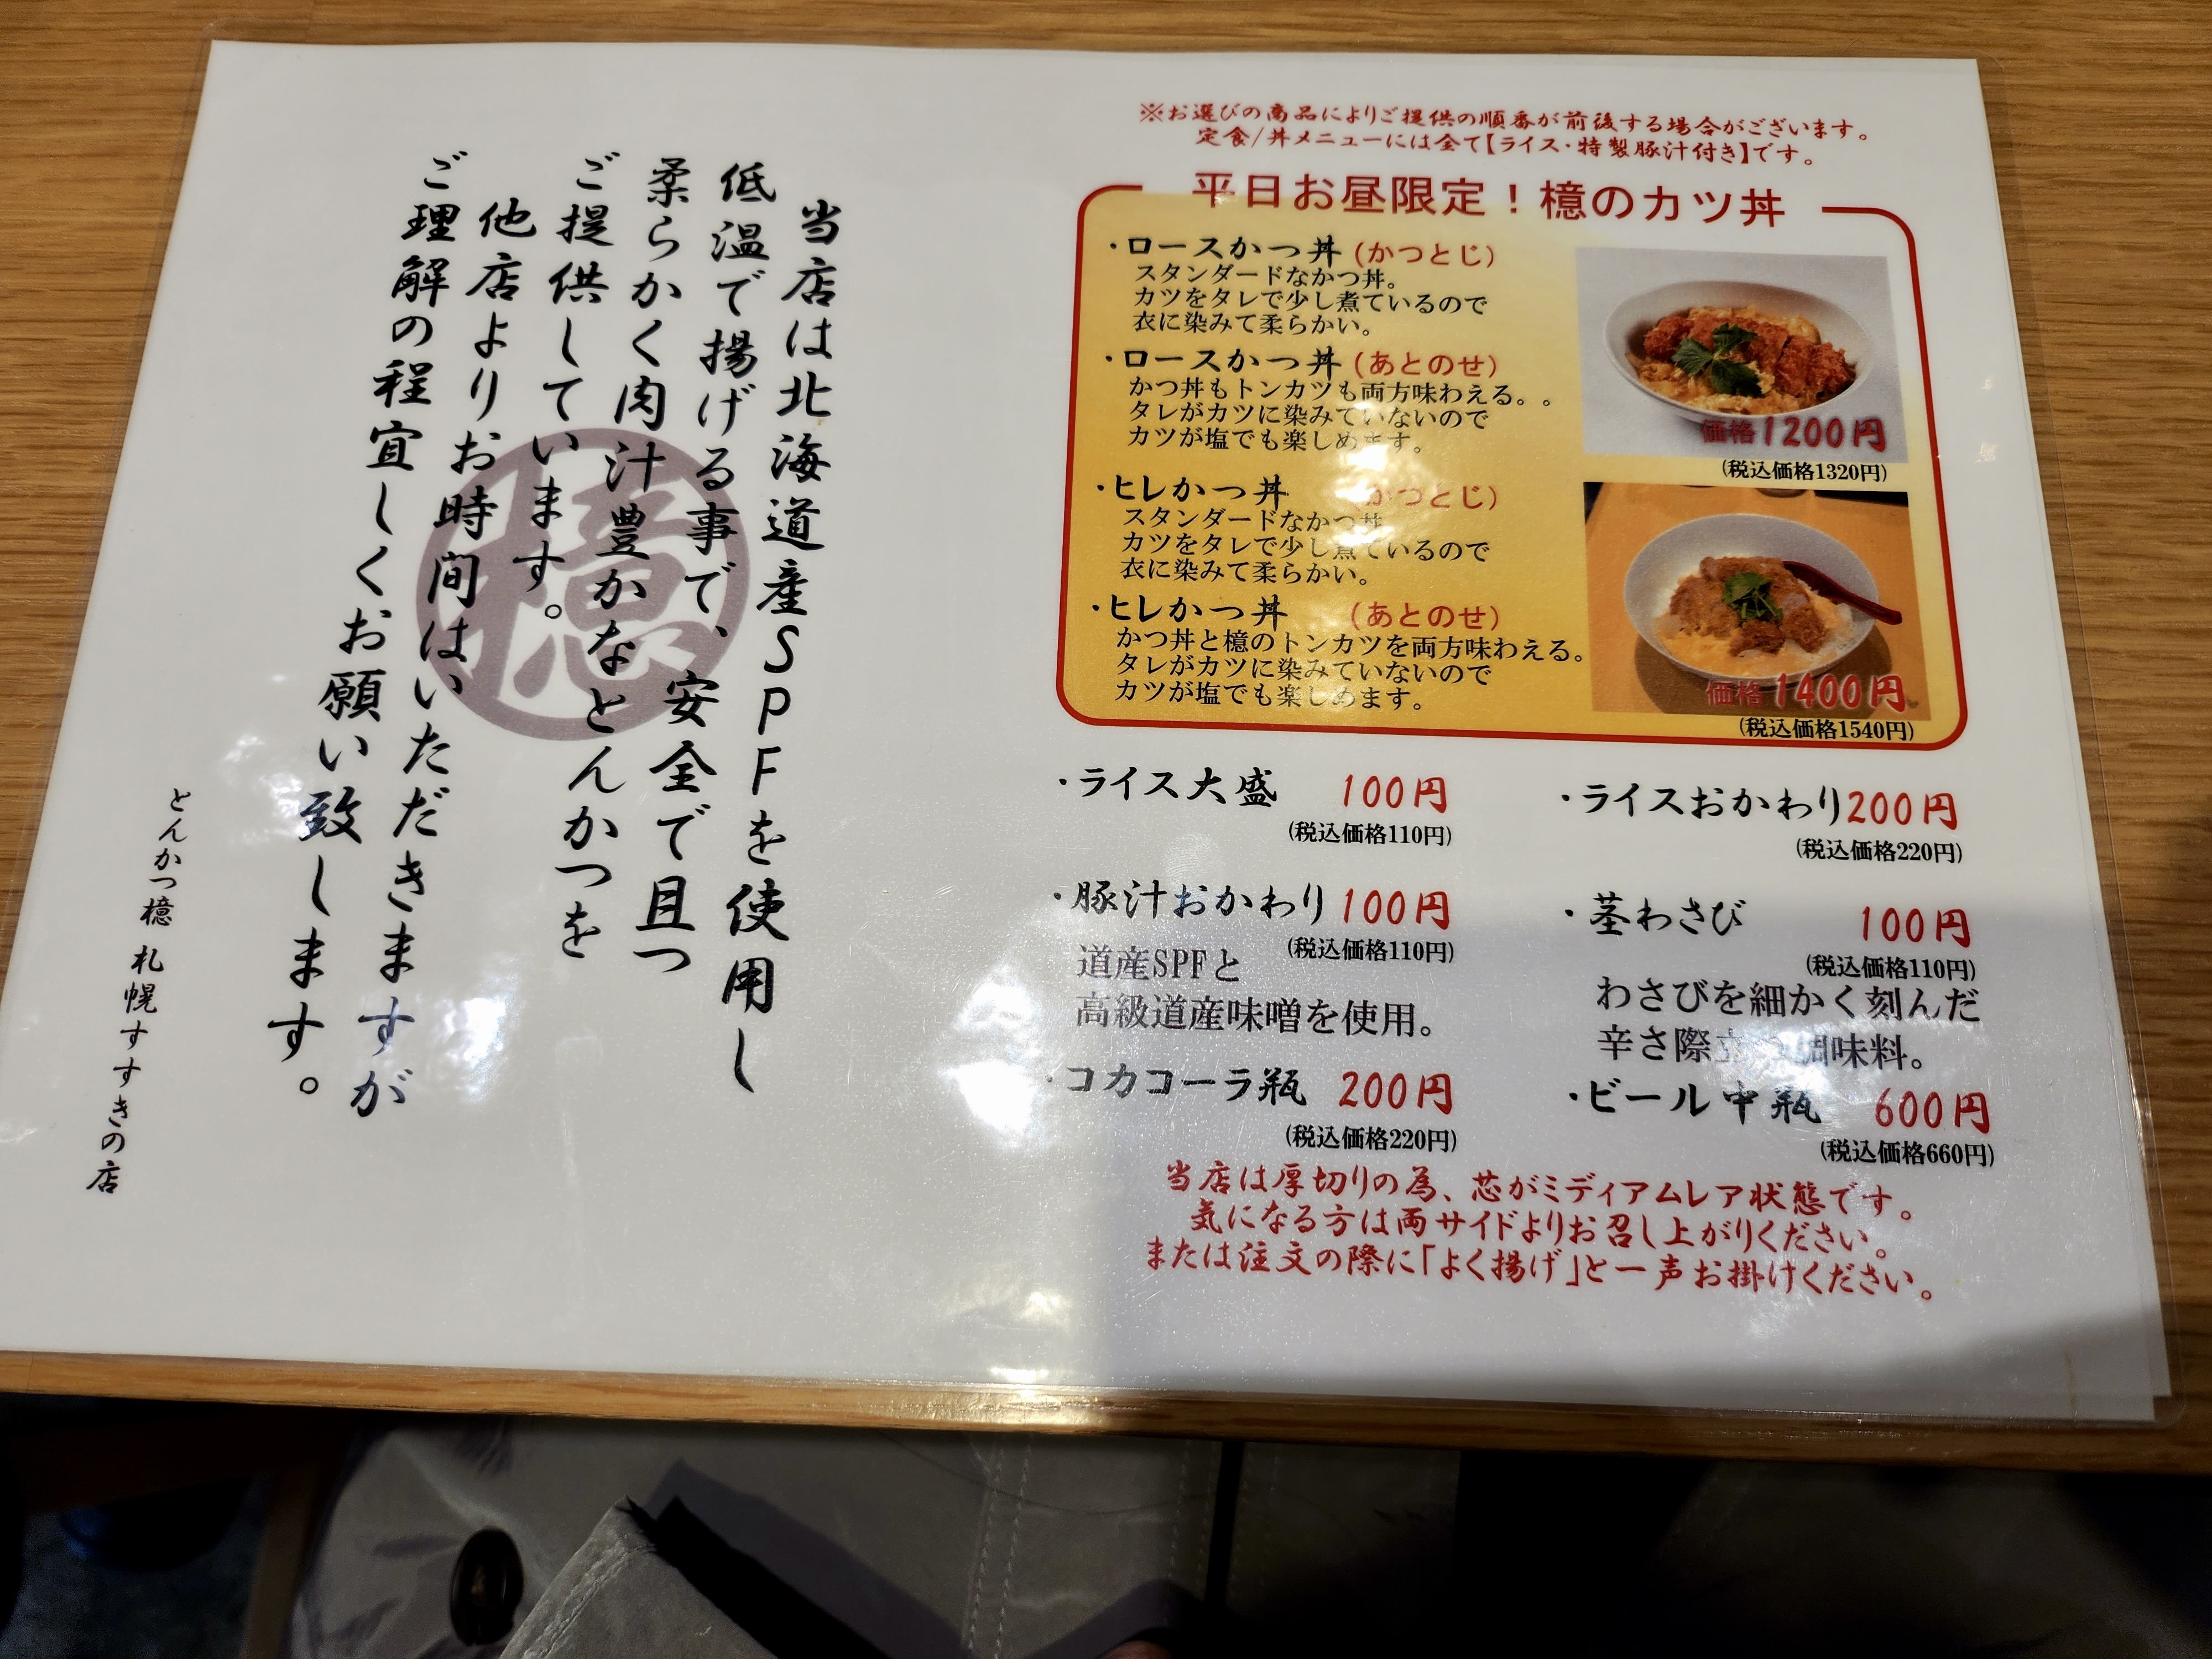 当店は北海道産SPFを使用し
低温で揚げる事で、安全で且つ
柔らかく肉汁豊かなとんかつを
ご提供しています。
他店よりお時間はいただきますが
ご理解の程宜しくお願い致します。
とんかつ檍 札幌すすきの店
檍
※お選びの商品によりご提供の順番が前後する場合がございます。
定食/丼メニューには全て【ライス・特製豚汁付き】です。
平日お昼限定！檍のカツ丼
・ロースかつ丼 (かつとじ)
スタンダードなかつ丼。
カツをタレで少し煮ているので
衣に染みて柔らかい。
・ロースかつ丼 (あとのせ)
かつ丼もトンカツも両方味わえる。。
タレがカツに染みていないので
カツが塩でも楽しめます。
価格1200円
(税込価格1320円)
・ヒレかつ丼 (かつとじ)
スタンダードなかつ丼
カツをタレで少し煮ているので
衣に染みて柔らかい。
・ヒレかつ丼 (あとのせ)
かつ丼と檍のトンカツを両方味わえる。
タレがカツに染みていないので
カツが塩でも楽しめます。
価格1400円
(税込価格1540円)
・ライス大盛 100円
(税込価格110円)
・ライスおかわり200円
(税込価格220円)
・豚汁おかわり 100円
(税込価格110円)
道産SPFと
高級道産味噌を使用。
・茎わさび 100円
(税込価格110円)
わさびを細かく刻んだ
辛さ際立つ調味料。
・コカコーラ瓶 200円
(税込価格220円)
・ビール中瓶 600円
(税込価格660円)
当店は厚切りの為、芯がミディアムレア状態です。
気になる方は両サイドよりお召し上がりください。
または注文の際に「よく揚げ」と一声お掛けください。